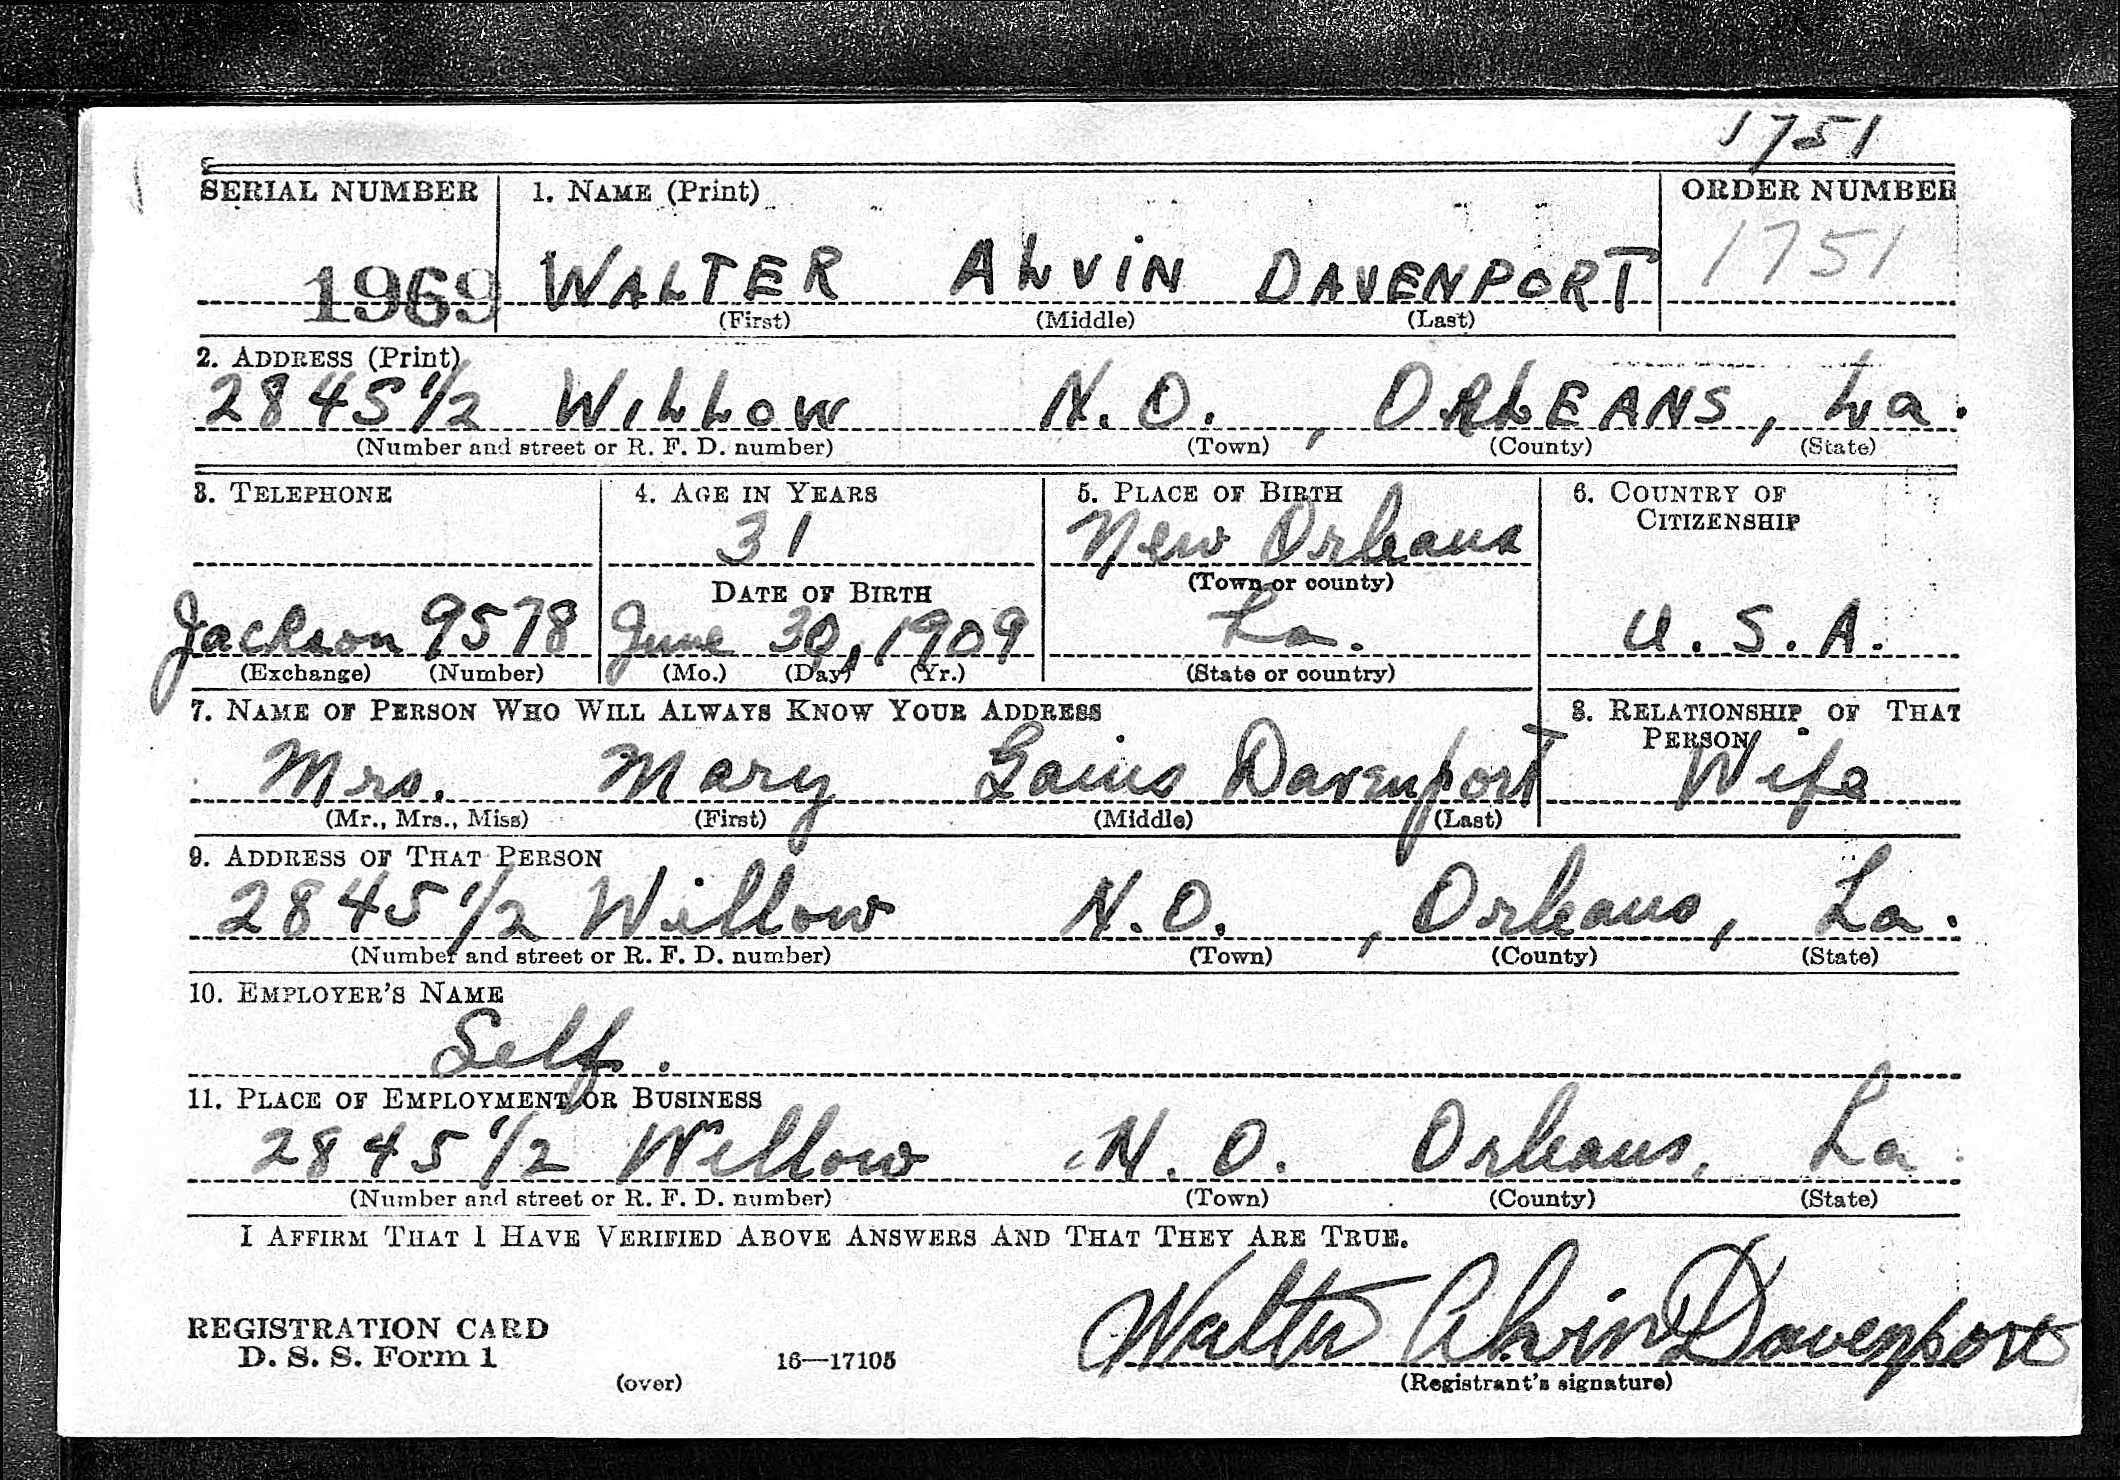 1751
SERIAL NUMBER 1. NAME (Print) ORDER NUMBER
1969 WALTER ALVIN DAVENPORT 1751
(First) (Middle) (Last)
2. ADDRESS (Print)
2845 1/2 WILLOW N.O., ORLEANS, La.
(Number and street or R. F. D. number) (Town) (County) (State)
3. TELEPHONE 4. AGE IN YEARS 5. PLACE OF BIRTH 6. COUNTRY OF
CITIZENSHIP
31 New Orleans
DATE OF BIRTH (Town or county)
Jackson 9578 June 30, 1909 La. U.S.A.
(Exchange) (Number) (Mo.) (Day) (Yr.) (State or country)
7. NAME OF PERSON WHO WILL ALWAYS KNOW YOUR ADDRESS 8. RELATIONSHIP OF THAT
PERSON
Mrs. Mary Gains Davenport Wife
(Mr., Mrs., Miss) (First) (Middle) (Last)
9. ADDRESS OF THAT PERSON
2845 1/2 Willow N.O., Orleans, La.
(Number and street or R. F. D. number) (Town) (County) (State)
10. EMPLOYER'S NAME
Self.
11. PLACE OF EMPLOYMENT OR BUSINESS
2845 1/2 Willow N.O. Orleans, La.
(Number and street or R. F. D. number) (Town) (County) (State)
I AFFIRM THAT I HAVE VERIFIED ABOVE ANSWERS AND THAT THEY ARE TRUE.
Walter Alvin Davenport
REGISTRATION CARD
D. S. S. Form 1 16—17105
(over) (Registrant's signature)